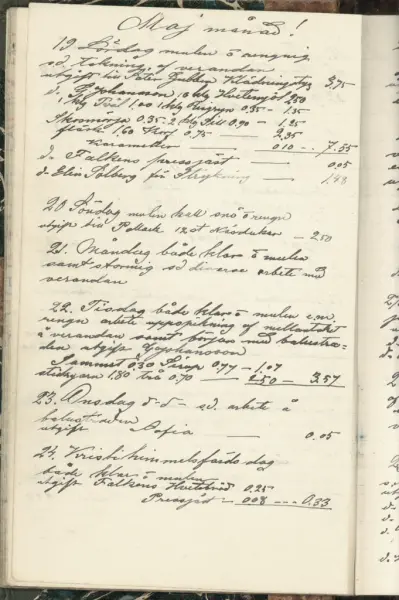 Maj månad!
19 Lördag mulen o
s.d. takning af verandan
utgift till Peter Klädningstyg 3,75
d. G Johansson 10 kg Hvetemjöl 2,50
1 kg Tvål 1,00 1 0,35 - 1,35
Skosmörja 0.35. 2 kg Sill 0,90 - 1,25
1.60 Korf 0.75 - 2,35
Karameller - 0.10 - 7.55
d- Falkens pressjäst - 0,05
d. Elin Solberg för Strykning - 1,48
20 Söndag mulen kall snö o regn
utgift till Pollack 12 st Näsdukar - 2,50
21. Måndag både klar o mulen
samt stormig s.d diverse arbete med
verandan
22. Tisdag både klar o mulen e.m.
regn arbete uppspikning af mellantaket
å verandan samt börjar med balustra-
den utgift G Johansson
Sammet 0.30 Sirap 0,77 - 1.07
1.80 0.70 - 2.50 - 3.57
23. Onsdag d- d- s.d. arbete å
balustraden
utgift Sofia - 0.05
24. Kristihimmelsfärdsdag
både klar o mulen
utgift Falkens Hvetebröd 0,25
Pressjäst - 0.08 --- 0.33